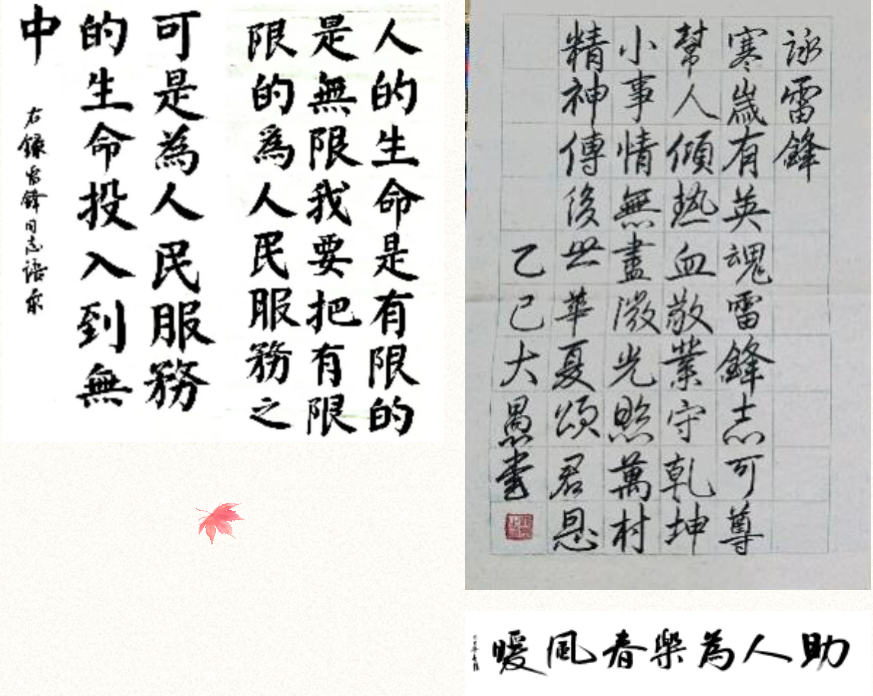 人的生命是有限的
可是為人民服務
是無限我要把有限
的生命投入到無
限的爲人民服務之
中
右錄雷鋒同志語录
詠雷鋒
寒歲有英魂雷鋒志可尊
幫人傾熱血敬業守乾坤
小事情無盡微光照萬村
精神傳後世華夏頌君恩
乙巳大愚書
助人為樂春風暖